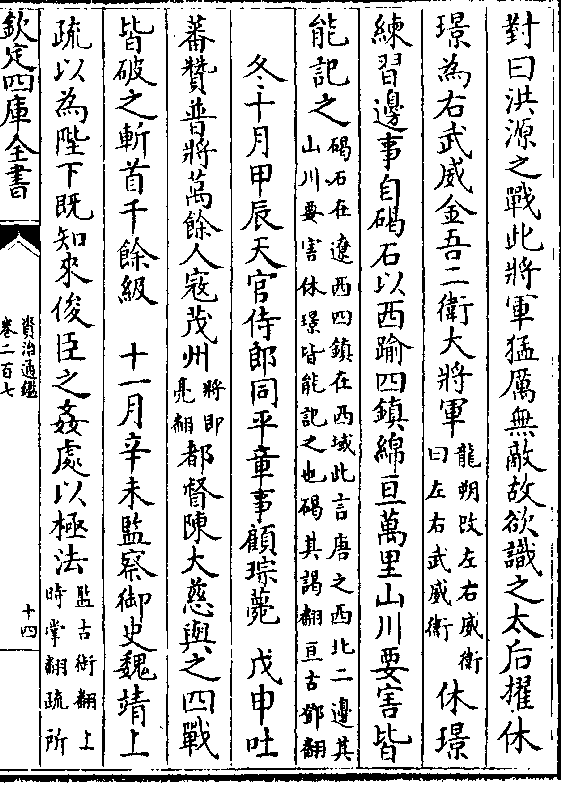 對曰洪源之戰此將軍猛厲無敵故欲識之太后擢休
璟為右武威金吾二衛大將軍龍朔改左右威衛曰左右武威衛休璟
練習邊事自碣石以西踰四鎮綿亘萬里山川要害皆
能記之碣石在遼西四鎮在西域此言唐之西北二邊其山川要害休璟皆能記之也碣其謁翻亘古鄧翻
冬十月甲辰天官侍郎同平章事顧琮薨 戊申吐
蕃贊普將萬餘人寇茂州將即亮翻都督陳大慈與之四戰
皆破之斬首千餘級 十一月辛未監察御史魏靖上
疏以為陛下既知來俊臣之姦處以極法監古銜翻上時掌翻疏所
欽定四庫全書
資治通鑑
卷二百七
十四